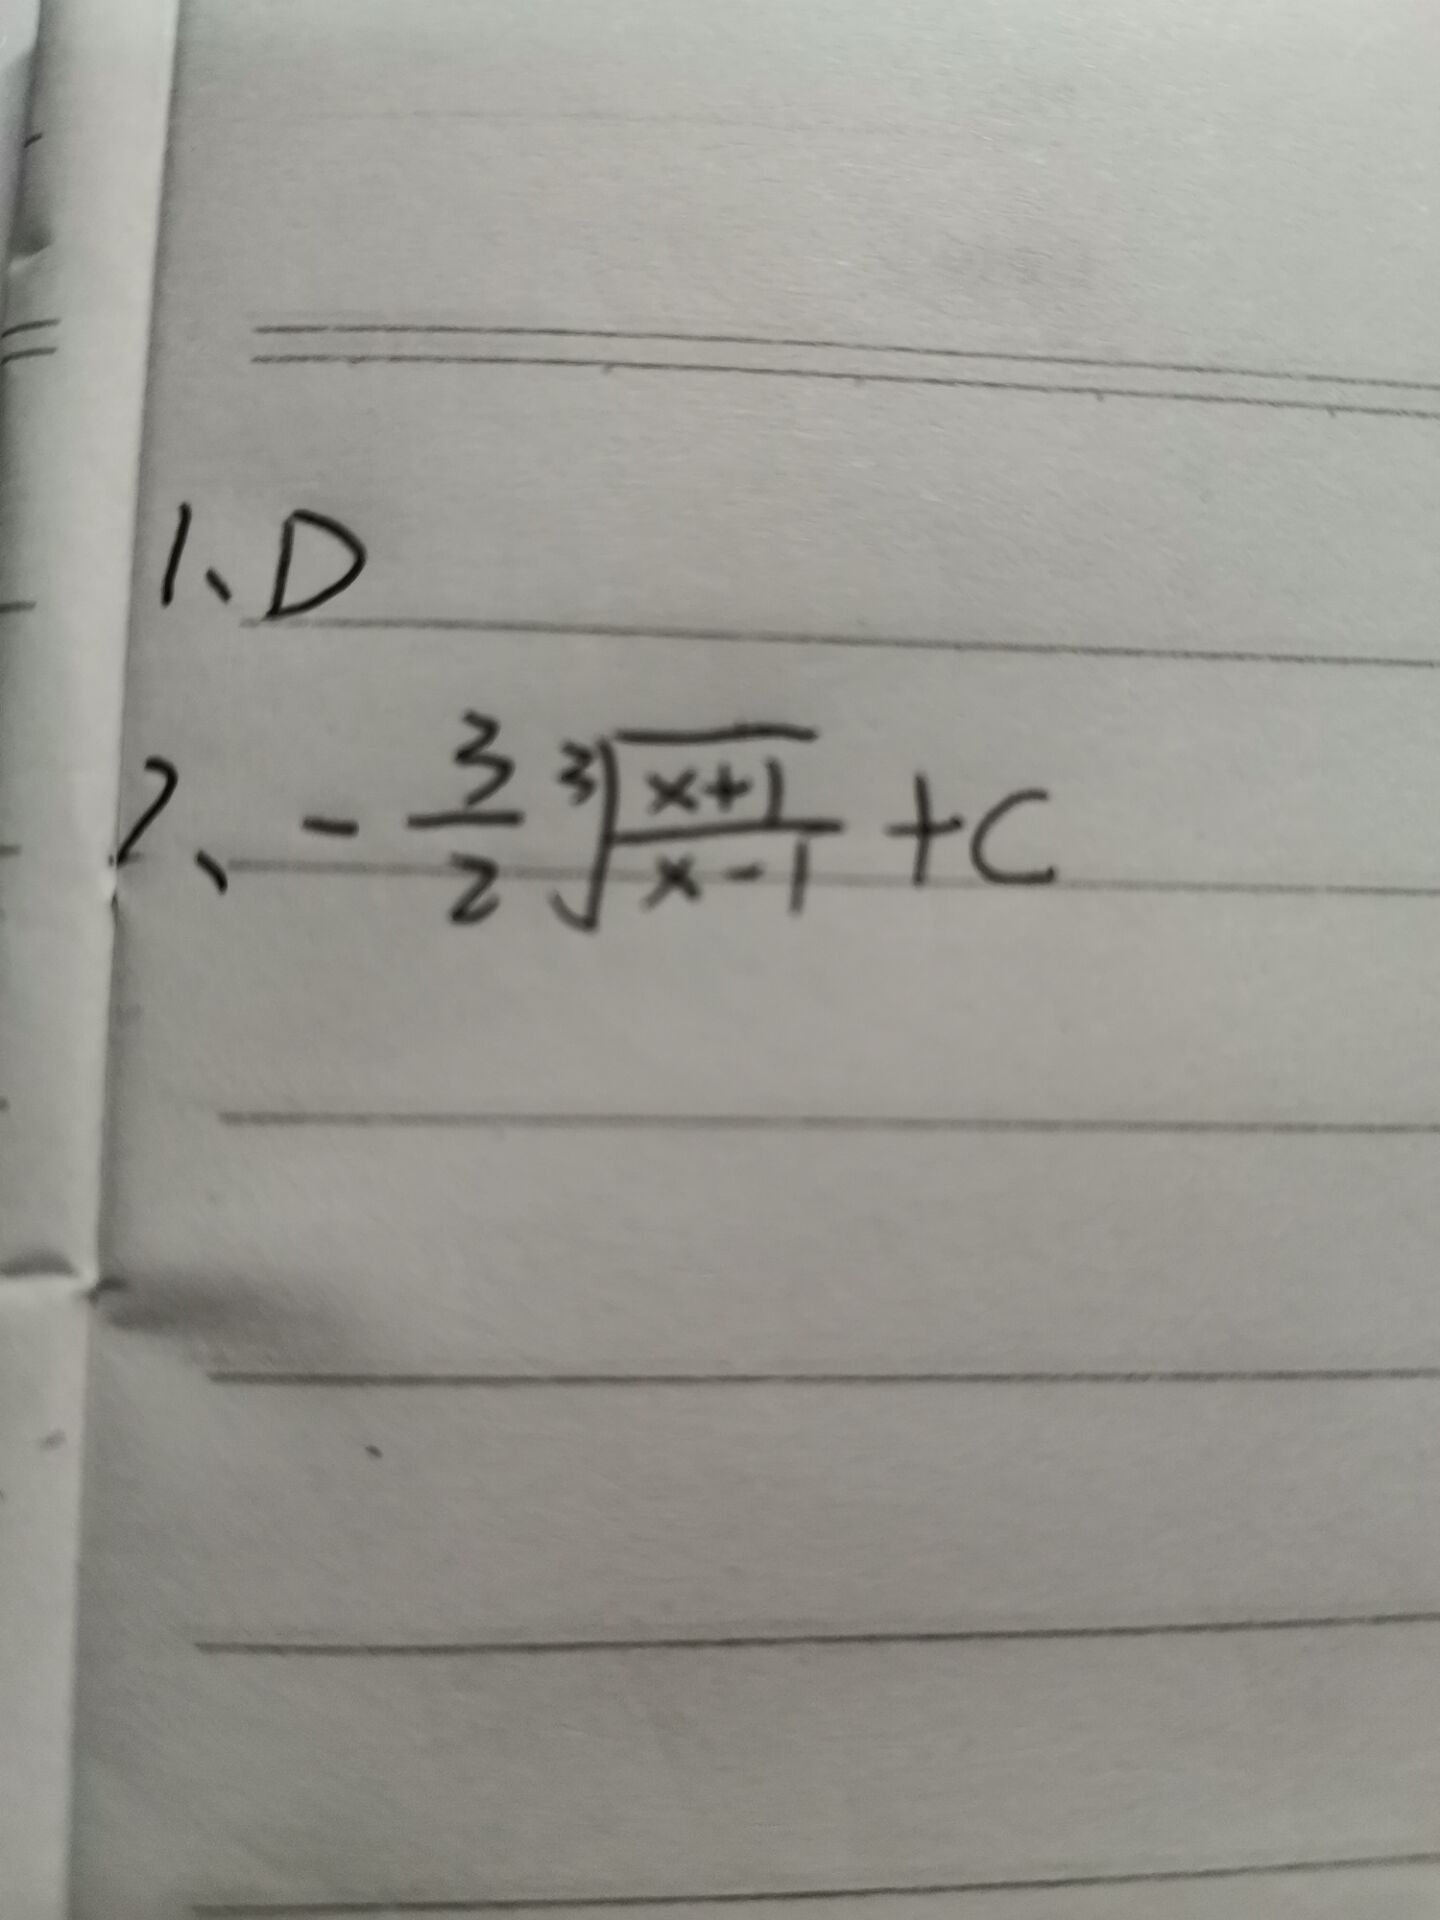 1、D
2、-\frac{3}{2}\sqrt[3]{\frac{x+1}{x-1}}+C